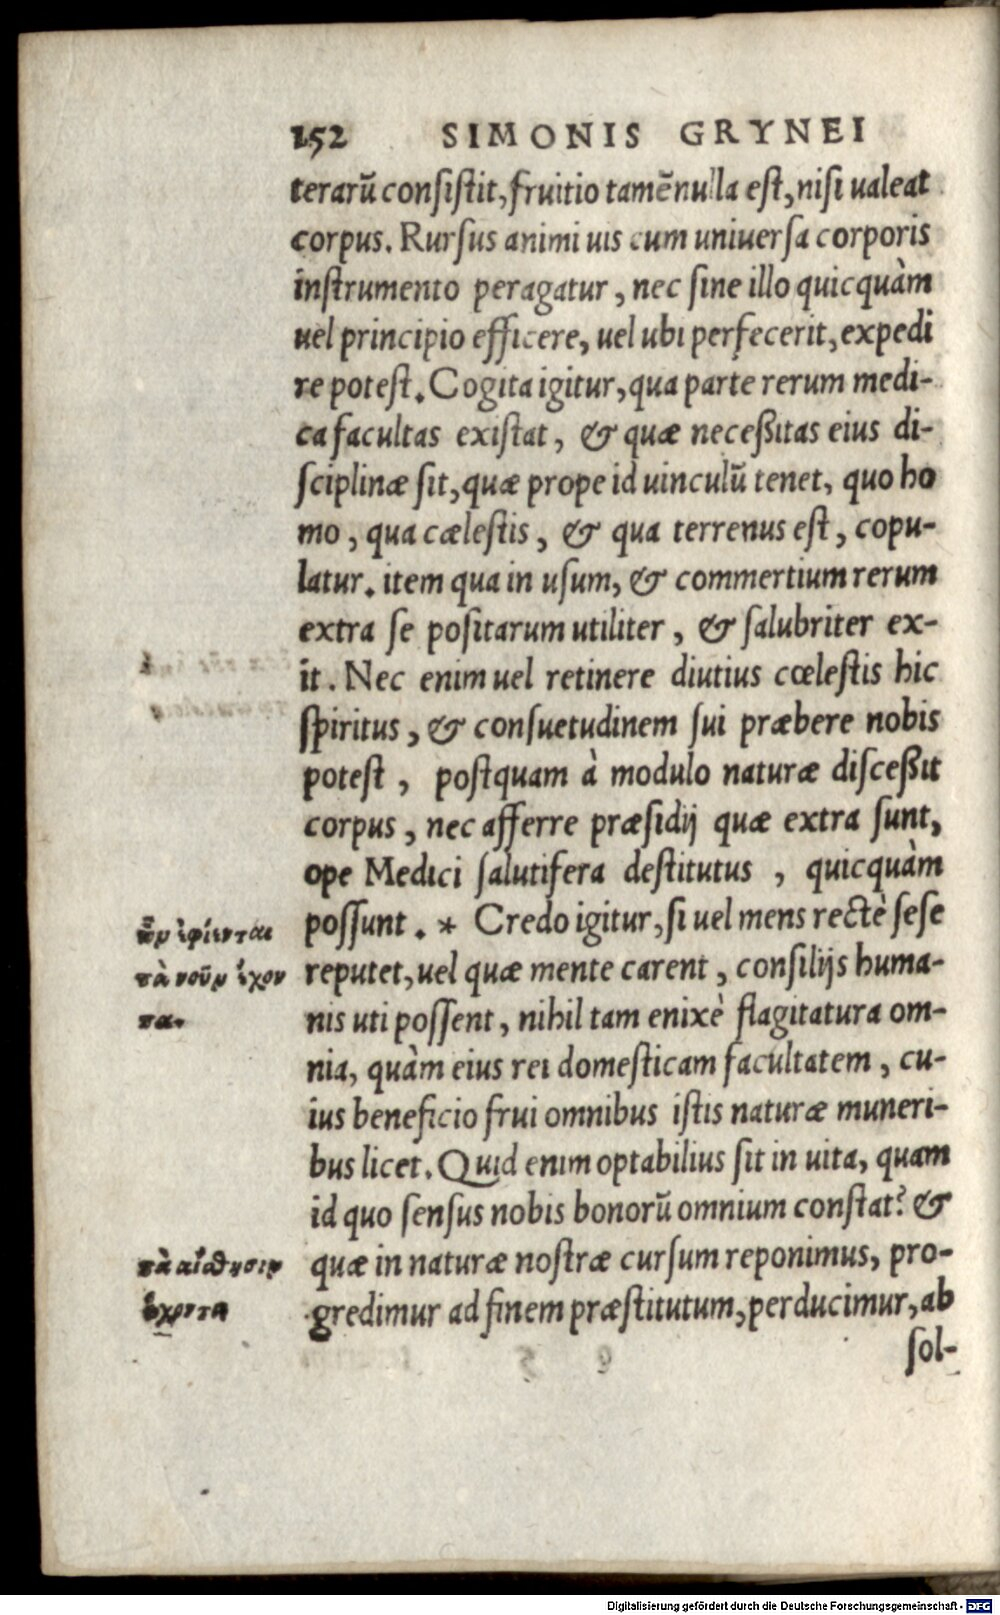 152 SIMONIS GRYNEI
terarũ consistit, fruitio tamẽ nulla est, nisi ualeat
corpus. Rursus animi uis cum uniuersa corporis
instrumento peragatur, nec sine illo quicquàm
uel principio efficere, uel ubi perfecerit, expedi
re potest. Cogita igitur, qua parte rerum medi-
ca facultas existat, & quæ neceßitas eius di-
sciplinæ sit, quæ prope id uinculũ tenet, quo ho
mo, qua cælestis, & qua terrenus est, copu-
latur. item qua in usum, & commertium rerum
extra se positarum utiliter, & salubriter ex-
it. Nec enim uel retinere diutius cœlestis hic
spiritus, & consuetudinem sui præbere nobis
potest, postquam à modulo naturæ disceßit
corpus, nec afferre præsidij quæ extra sunt,
ope Medici salutifera destitutus, quicquàm
possunt. * Credo igitur, si uel mens rectè sese
ὧν ἐφίενται
reputet, uel quæ mente carent, consilijs huma-
τὰ νοῦν ἔχον
nis uti possent, nihil tam enixè flagitatura om-
τα.
nia, quàm eius rei domesticam facultatem, cu-
ius beneficio frui omnibus istis naturæ muneri-
bus licet. Quid enim optabilius sit in uita, quam
id quo sensus nobis bonorũ omnium constat? &
quæ in naturæ nostræ cursum reponimus, pro-
τὰ αἴσθησιν
gredimur ad finem præstitutum, perducimur, ab
ἔχοντα
sol-
Digitalisierung gefördert durch die Deutsche Forschungsgemeinschaft - DFG